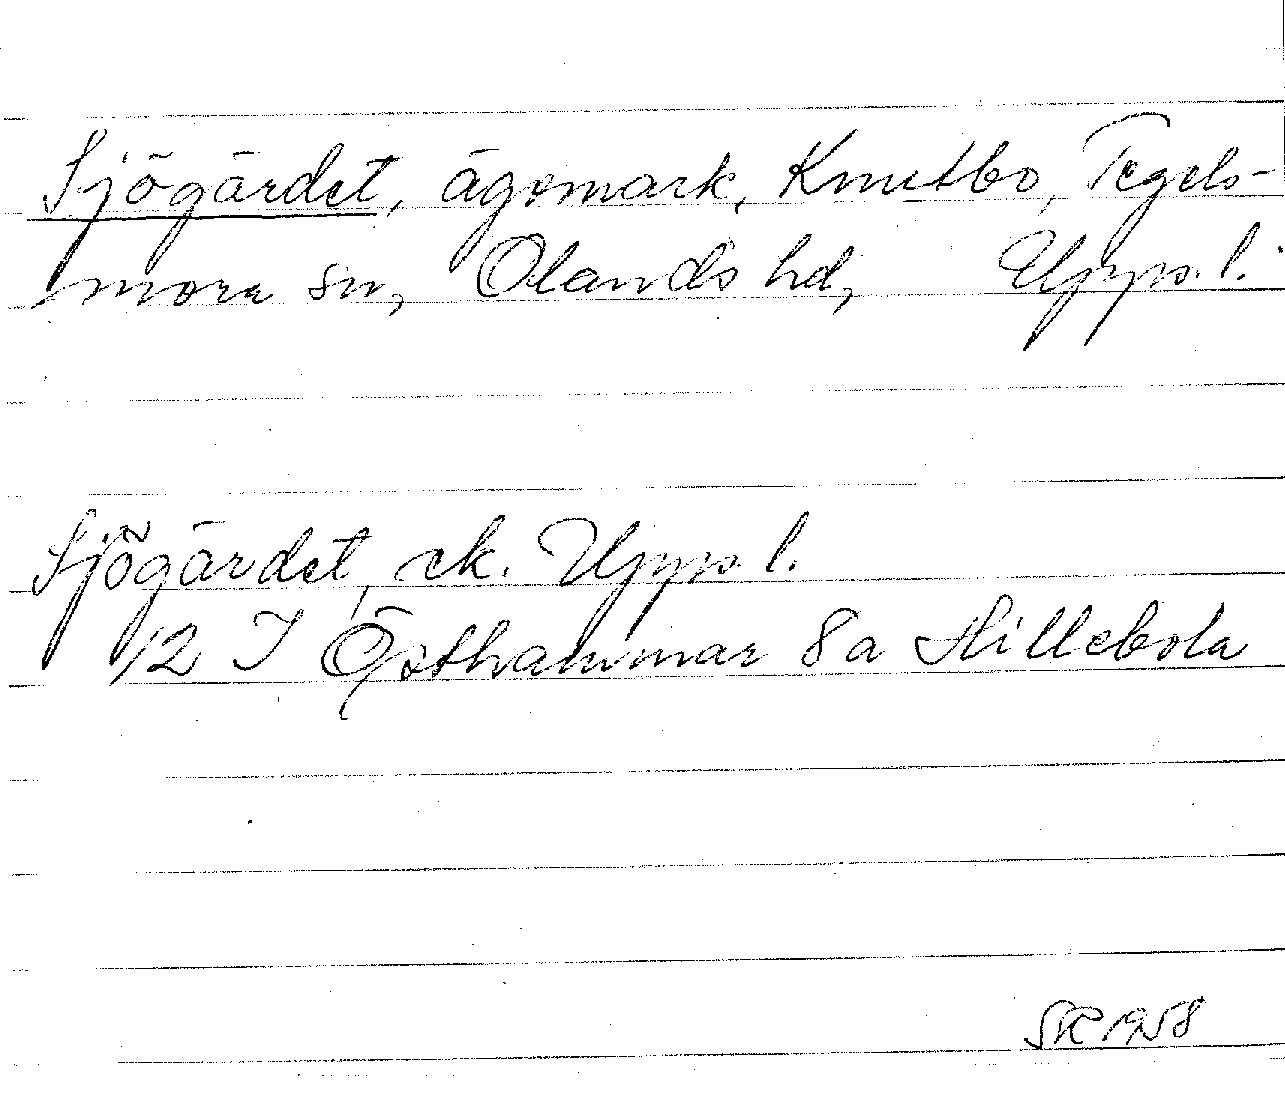 Sjögärdet, ägomark, Knutbo, Tegels-
mora sn, Olands hd, Upps. l.
Sjögärdet, ek. Upps. l.
12 I Östhammar 8a Hillebola
SR 1958